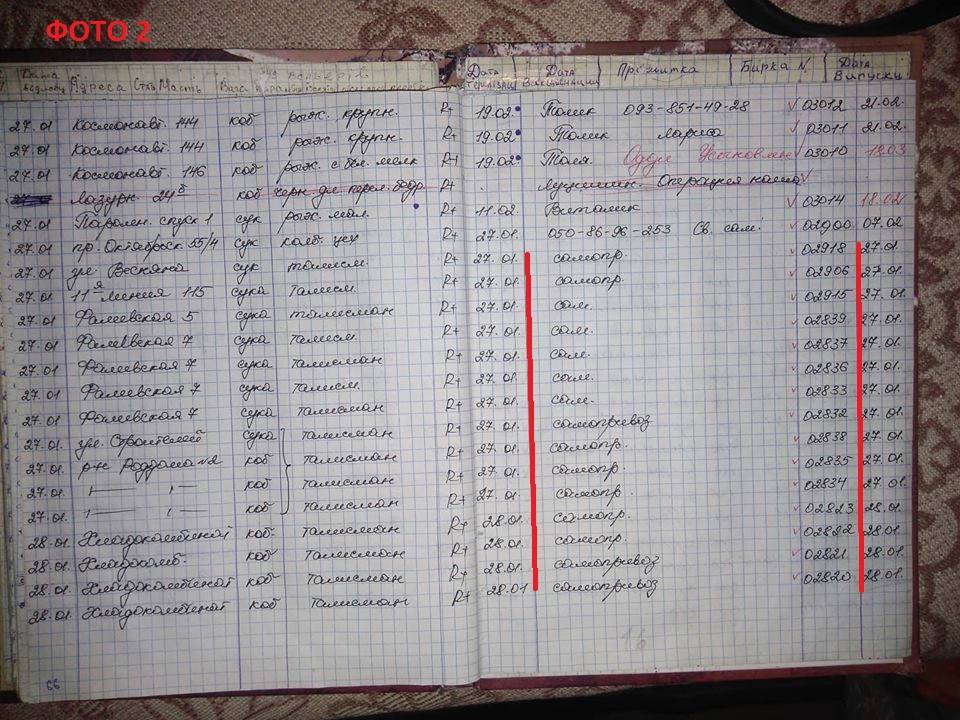 ФОТО 2
Дата Адреса Стать Масть Вага № вольєрів Дата Дата Примітка Бирка № Дата Випуску
27.01 Космонавт. 144 коб рыж. крупн. R+ 19.02 Толик 093-851-49-28 03012 21.02.
27.01 Космонавт. 144 коб рыж. крупн. R+ 19.02 Толик Лариса 03011 21.02
27.01 Космонавт. 146 коб рыж. с бел. мелк R+ 19.02 Толя. 03010 18.03
Лазурн. 24 коб R+ Операция
27.01 Паромн. спуск 1 сук рыж. мал. R+ 11.02 Виталик 03014 18.02
27.01 пр. Октябрьск 55/4 сук R+ 27.01. 050-86-96-253 Св. сам. 02900 07.02
27.01 Весняна сук талисм. R+ 27.01. самопр. 02918 27.01.
27.01 11я линия 115 сука талисм. R+ 27.01. самопр. 02906 27.01.
27.01 Фалеевская 5 сука талисман R+ 27.01. сам. 02915 27.01.
27.01 Фалеевская 7 сука талисм. R+ 27.01. сам. 02839 27.01.
27.01 Фалеевская 7 сука талисман R+ 27.01. сам. 02837 27.01.
27.01 Фалеевская 7 сука талисм. R+ 27.01. сам. 02836 27.01.
27.01 Фалеевская 7 сука талисман R+ 27.01. сам. 02833 27.01.
27.01. Строителей сука талисман R+ 27.01. самопривоз 02832 27.01.
27.01. р-н Роддома №2 коб талисман R+ 27.01. самопр. 02838 27.01.
27.01. —"— —"— коб талисман R+ 27.01. самопр. 02835 27.01.
27.01. —"— —"— коб талисман R+ 27.01. самопр. 02834 27.01.
28.01. Хладокомбинат коб. талисман R+ 28.01. самопр. 02823 28.01.
28.01. Хладокомб. коб талисман R+ 28.01. самопр. 02822 28.01.
28.01. Хладокомбинат коб талисман R+ 28.01. самопривоз 02821 28.01.
28.01. Хладокомбинат коб талисман R+ 28.01 самопривоз 02820 28.01.
66
16